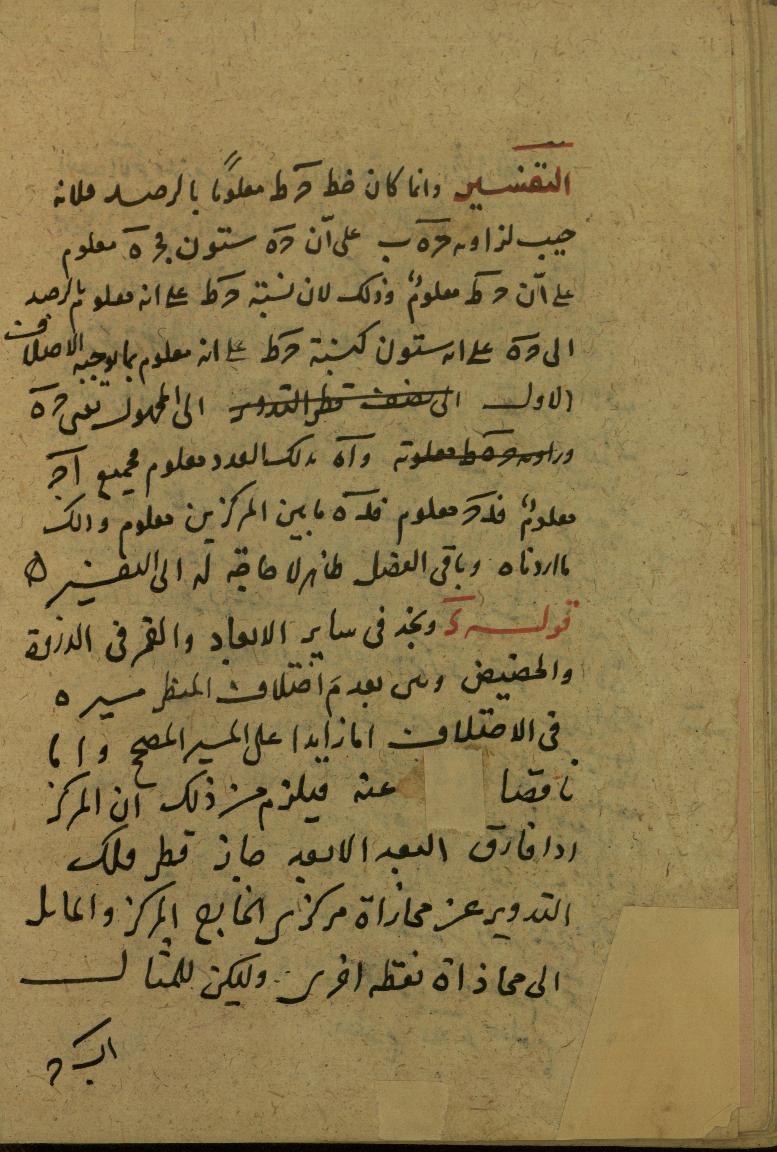 التفسير وانما كان خط حَط معلومًا بالرصد فلانه
جيب لزاويه حهَ ب على أن حهَ ستون فحهَ معلوم
على أن حط معلوم وذلك لان نسبة حط على انه معلوم بالرصد
الى حهَ على انه ستون كنسبة حط على انه معلوم بما يوجبه الاختلاف
الاول الى نصف قطر التدوير الى المجهول يعني حهَ
وراويه حهَط معلومه واهَ بذلك العدد معلوم فجميع اجَ
معلوم فدحَ معلوم فدهَ ما بين المركزين معلوم وذلك
ما اردناه وباقى الفصل ظاهر لا حاجة له الى التفسير ه
قولــه كَ ونجد فى ساير الابعاد والقمر فى الذروة
والحضيض وهى بعدم اختلاف المنظر مسيره
فى الاختلاف اما زايدا على المسير المصحح واما
ناقصا عنه فيلزم من ذلك ان المركز
اذا فارق البعد الابعد جاز قطر فلك
التدوير عن محاذاة مركزى الخارج المركز والمايل
الى محاذاة نقطه اخرى وليكن للمثالـــ
ابـحـ